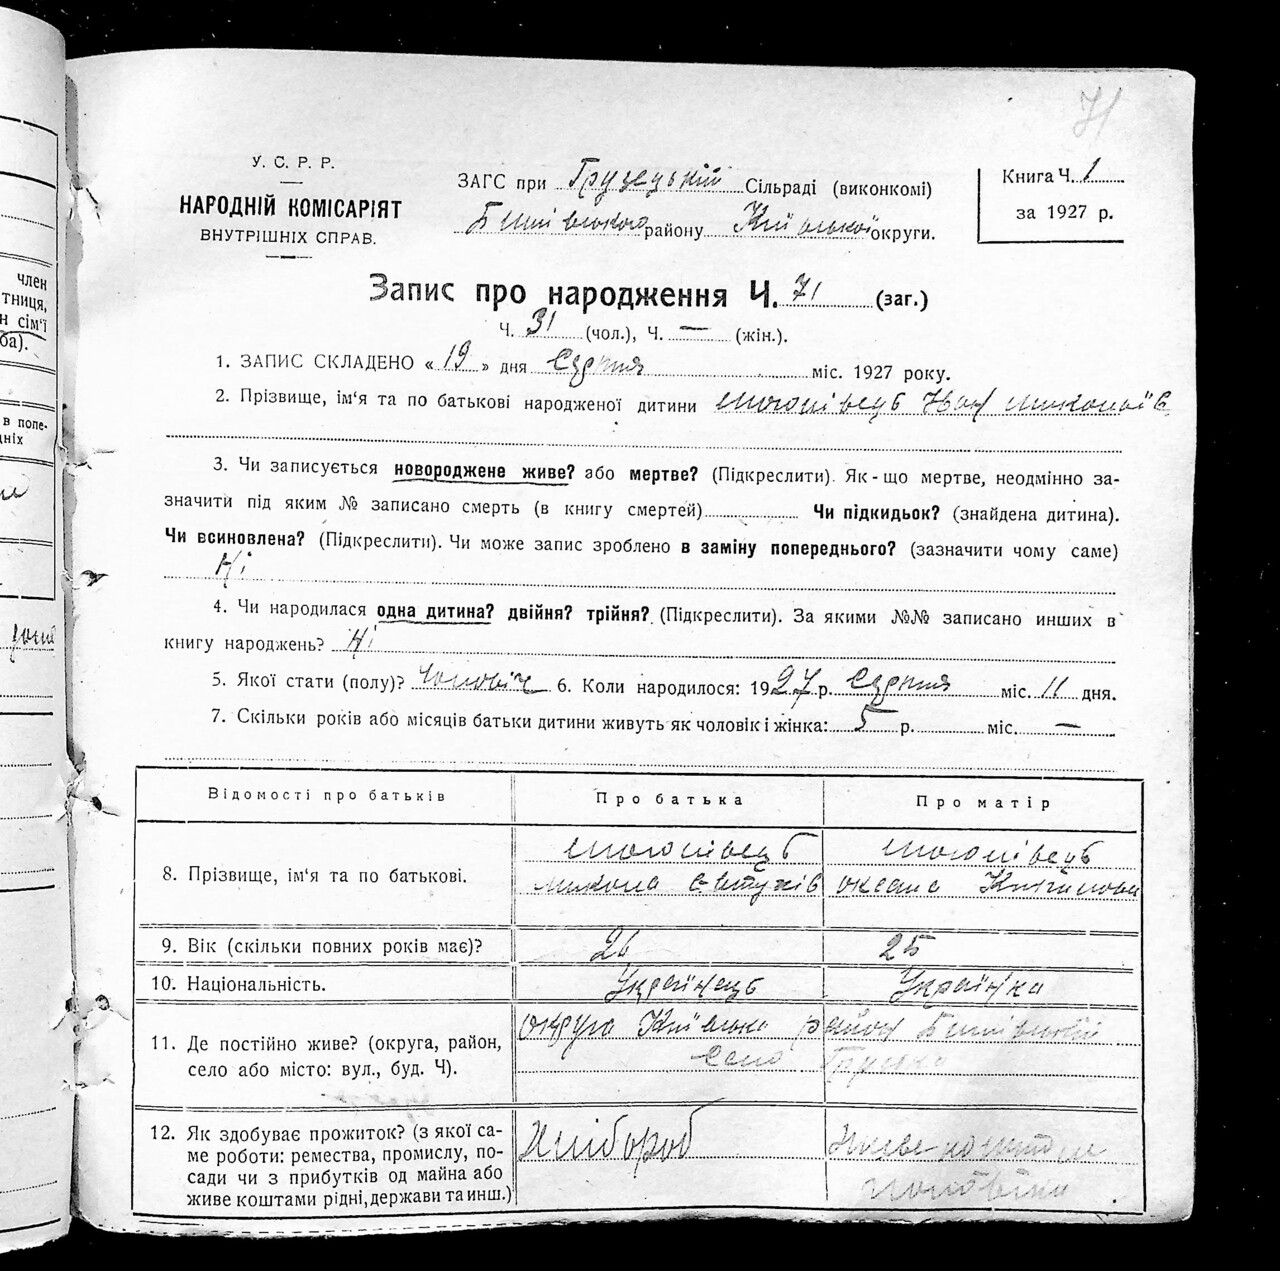 71
У. С. Р. Р.
НАРОДНІЙ КОМІСАРІЯТ
ВНУТРІШНІХ СПРАВ.
ЗАГС при Грузецькій Сільраді (виконкомі)
Бишівського району Київської округи.
Книга Ч. 1
за 1927 р.
Запис про народження Ч. 71 (заг.)
Ч. 31 (чол.), Ч. — (жін.).
1. ЗАПИС СКЛАДЕНО « 19 » дня Серпня міс. 1927 року.
2. Прізвище, ім‘я та по батькові народженої дитини Іван
3. Чи записується новороджене живе? або мертве? (Підкреслити). Як-що мертве, неодмінно за-
значити під яким № записано смерть (в книгу смертей) Чи підкидьок? (знайдена дитина).
Чи всиновлена? (Підкреслити). Чи може запис зроблено в заміну попереднього? (зазначити чому саме)
Ні
4. Чи народилася одна дитина? двійня? трійня? (Підкреслити). За якими №№ записано инших в
книгу народжень? Ні
5. Якої стати (полу)? Чоловіч 6. Коли народилося: 1927 р. Серпня міс. 11 дня.
7. Скільки років або місяців батьки дитини живуть як чоловік і жінка: 5 р. міс. —
Відомості про батьків Про батька Про матір
8. Прізвище, ім‘я та по батькові.
Микола Євтухів Оксана
9. Вік (скільки повних років має)? 26 25
10. Національність. Українець Українка
11. Де постійно живе? (округа, район,
село або місто: вул., буд. Ч).
округа Київська район Бишівський
Село Грузьке
12. Як здобуває прожиток? (з якої са-
ме роботи: ремества, промислу, по-
сади чи з прибутків од майна або
живе коштами рідні, держави та инш.)
Хлібороб
чоловіка
член
тниця,
н сім‘ї
ба).
в попе-
дніх